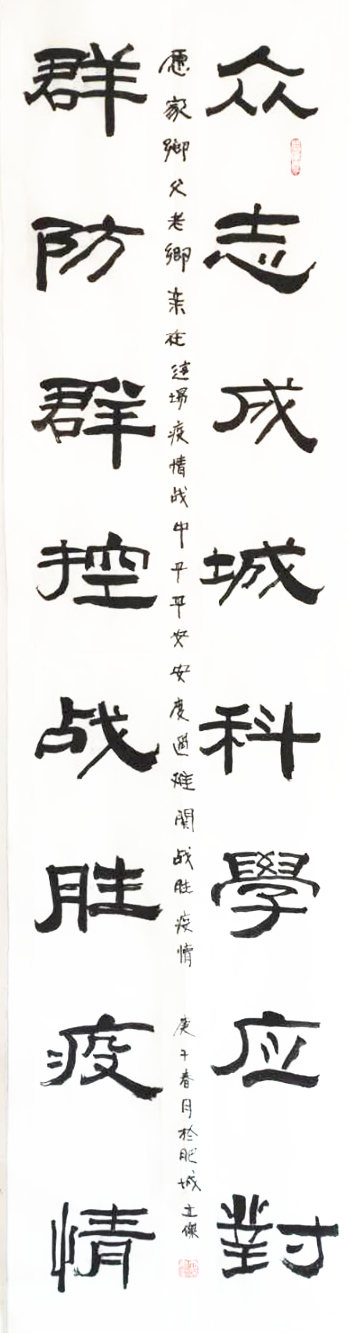 众志成城科學应對
群防群控战胜疫情
愿家鄉父老鄉亲在这場疫情战中平平安安度過难関战胜疫情
庚子春月於肥城士傑